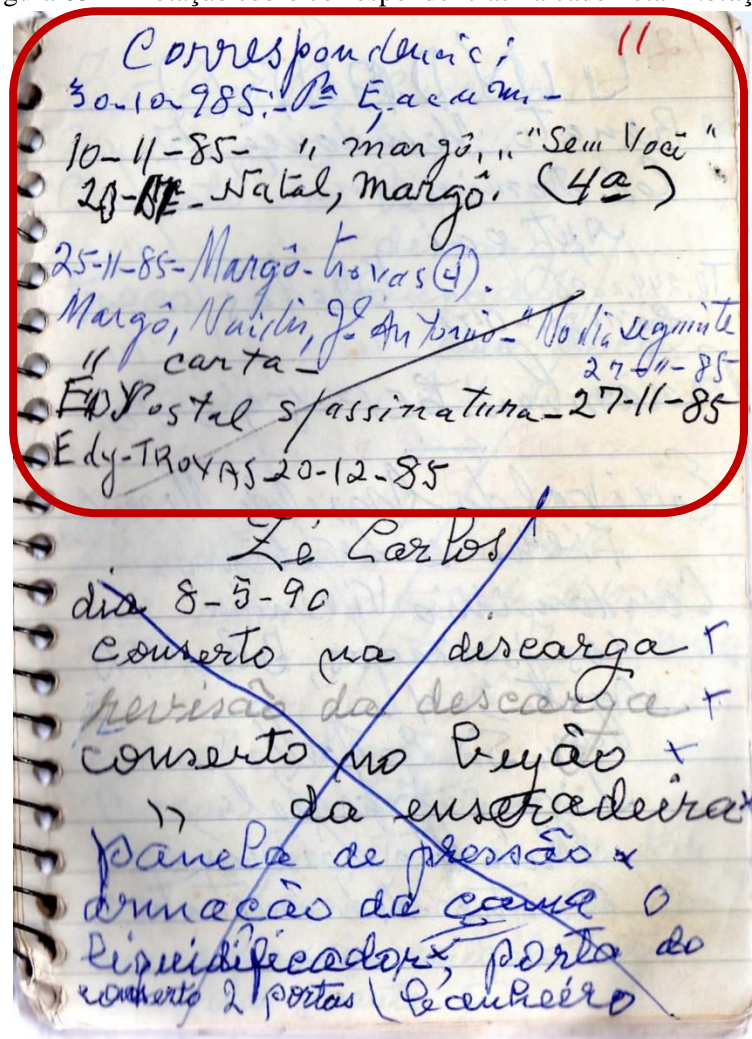 11
Correspondencia:
30-10-985:-Pª
10-11-85- " margô, " "Sem Você"
Natal, Margô. (4ª)
25-11-85-Margô-trovas (4).
Margô, Jé Antonio-"No dia seguinte
" carta- 27-11-85
Postal s/assinatura-27-11-85
Edy-TROVAS 20-12-85
Zé Carlos
dia 8-5-90
conserto na descarga
revisão da descarga
conserto no fugão x
" da enseradeira x
panela de pressão x
armação da cama o
liquidificador x, porta do
conserto 2 portas \ banheiro